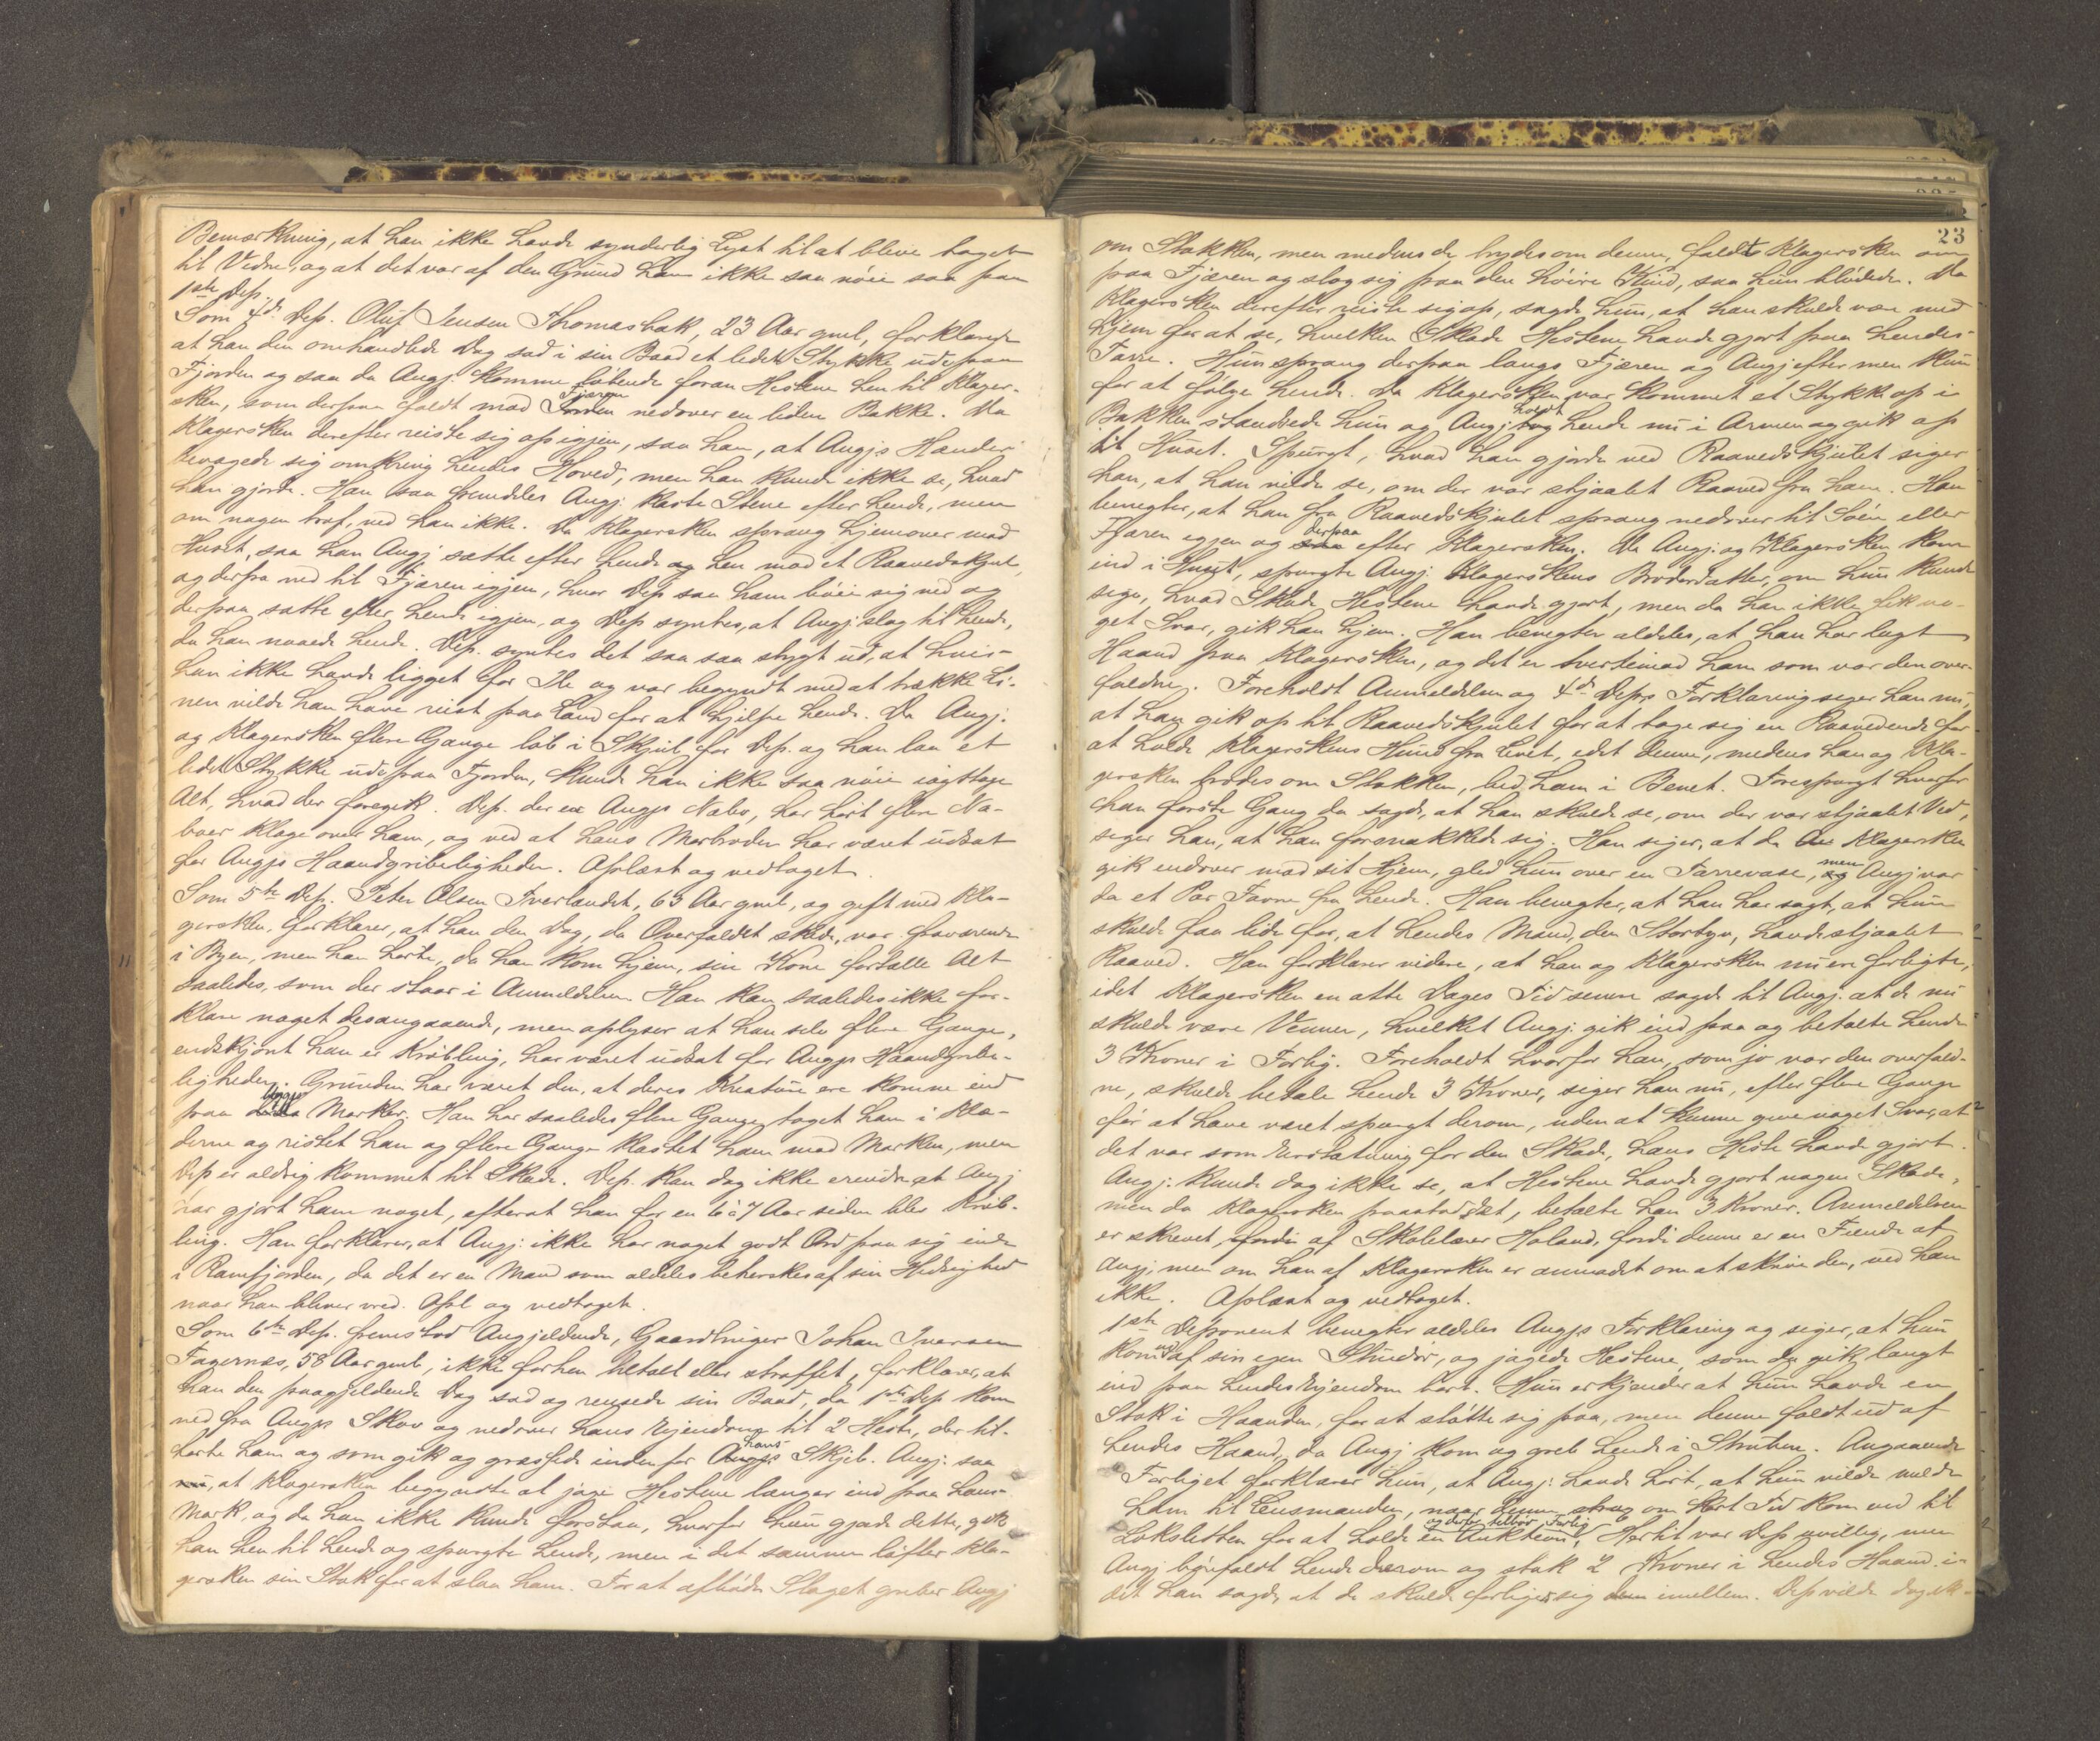 Bemærkning, at han ikke havde synderlig Lyst til at blive taget
til Vidne, og at det var af den Grund han ikke saa nöie saa paa
1ste Dep.
Som 4de Dep. Oluf Jensen Thomasbak, 23 Aar gml, forklarede
at han den omhandlede Dag sad i sin Baad et lidet Stykke ude paa
Fjorden og saa da Angj. komme löbende foran Hestene hen til Klager-
sken, som derpaa faldt mod Fjæren nedover en liden Bakke. Da
Klagersken derefter reiste sig op igjen, saa han, at Angjs Hænder
bevægede sig omkring hendes Hoved, men han kunde ikke se, hvad
han gjorde. Han saa fremdeles Angj. kaste Stene efter hende, men
om nogen traf, ved han ikke. Da Klagersken sprang hjemover mod
Huset, saa han Angj sætte efter hende og hen mod et Raavedskjul,
og derfra ned til Fjæren igjen, hvor Dep saa ham böie sig ned og
derpaa sætte efter hende igjen, og Dep syntes, at Angj. slog til hende,
da han naaede hende. Dep. syntes det saa saa stygt ud, at hvis
han ikke havde ligget for Ile og var begyndt med at trække Li-
nen vilde han have reist paa Land for at hjelpe hende. Da Angj.
og Klagersken flere Gange löb i Skjul for Dep. og han laa et
lidet Stykke ude paa Fjorden, kunde han ikke saa nöie iagttage
Alt, hvad der foregik. Dep. der er Angjs Nabo, har hört flere Na-
boer klage over ham, og ved at hans Morbroder har været udsat
for Angjs Haandgribeligheder. Oplæst og vedtaget.
Som 5te Dep. Peter Olsen Tverlandet, 63 Aar gml, og gift med Kla-
gersken, forklarer, at han den Dag, da Overfaldet skede, var fraværende
i Byen, men han hörte, da han kom hjem, sin Kone fortælle Alt
saaledes, som der staar i Anmeldelsen. Han kan saaledes ikke for-
klare noget desangaaende, men oplyser at han selv flere Gange,
endskjönt han er Kröbling, har været udsat for Angjs Haandgribe-
ligheder. Grunden har været den, at deres Kreature ere komne ind
paa Angjs Marker. Han har saaledes flere Gange taget ham i Klæ-
derne og ristet ham og flere Gange kastet ham mod Marken, men
Dep er aldrig kommet til Skade. Dep. kan dog ikke erindre, at Angj
har gjort ham noget, efterat han for en 6 à 7 Aar siden blev Kröb-
ling. Han forklarer, at Angj. ikke har noget godt Ord paa sig inde
i Ramfjorden, da det er en Mand som aldeles beherskes af sin Hidsighed
naar han bliver vred. Opl og vedtaget.
Som 6te Dep. fremstod Angjeldende, Gaardbruger Johan Iversen
Fagernæs, 58 Aar gml, ikke forhen tiltalt eller straffet, forklarer, at
han den paagjeldende Dag sad og rensede sin Baad, da 1ste Dep kom
ned fra Angjs Skov og nedover hans Eiendom til 2 Heste, der til-
hörte ham og som gik og græssede indenfor hans Skjel. Angj. saa
nu, at Klagersken begyndte at jage Hestene længer ind paa hans
Mark, og da han ikke kunde forstaa, hvorfor hun gjorde dette, gik
han hen til hende og spurgte hende, men i det samme löfter Kla-
gersken sin Stok for at slaa ham. For at afböde Slaget griber Angj
23
om Stokken, men medens de brydes om denne, faldt Klagersken om
paa Fjæren og slog sig paa den höire Kind, saa hun blödede. Da
Klagersken derefter reiste sig op, sagde hun, at han skulde være med
hjem for at se, hvilken Skade Hestene havde gjort paa hendes
Tarre. Hun sprang derpaa langs Fjæren og Angj efter men kun
for at fölge hende. Da Klagersken var kommet et Stykke op i
Bakken standsede hun og Angj holdt hende nu i Armen og gik op
til Huset. Spurgt, hvad han gjorde ved Raavedskjulet siger
han, at han vilde se, om der var stjaalet Raaved fra ham. Han
benegter, at han fra Raavedskjulet sprang nedover til Söen eller
Fjæren igjen og derpaa efter Klagersken. Da Angj. og Klagersken kom
ind i Huset, spurgte Angj. Klagerskens Broderdatter, om hun kunde
sige, hvad Skade Hestene havde gjort, men da han ikke fik no-
get Svar, gik han hjem. Han benegter aldeles, at han har lagt
Haand paa Klagersken, og det er tvertimod ham som var den over-
faldne. Foreholdt Anmeldelsen og 4de Deps Forklaring siger han nu,
at han gik op til Raavedskjulet for at tage sig en Raavedende for
at holde Klagerskens Hund fra Livet, idet denne, medens han og Kla-
gersken brödes om Stokken, bed ham i Benet. Forespurgt hvorfor
han förste Gang da sagde, at han skulde se, om der var stjaalet Ved,
siger han, at han forsnakkede sig. Han siger, at da Klagersken
gik endover mod sit Hjem, gled hun over en Tarrevase, men Angj var
da et Par Favne fra hende. Han benegter, at han har sagt, at hun
skulde faa lide for, at hendes Mand, den Stortyv, havde stjaalet
Raaved. Han forklarer videre, at han og Klagersken nu ere forligte,
idet Klagersken en otte Dages Tid senere sagde til Angj. at de nu
skulde være Venner, hvilket Angj. gik ind paa og betalte hende
3 Kroner i Forlig. Foreholdt hvorfor han, som jo var den overfald-
ne, skulde betale hende 3 Kroner, siger han nu, efter flere Gange
för at have været spurgt derom, uden at kunne give noget Svar, at
det var som Erstatning for den Skade, hans Heste havde gjort.
Angj. kunde dog ikke se, at Hestene havde gjort nogen Skade,
men da Klagersken paastod det, betalte han 3 Kroner. Anmeldelsen
er skrevet, af Skolelærer Holand, fordi denne er en Fiende af
Angj. men om han af Klagersken er anmodet om at skrive den, ved han
ikke. Oplæst og vedtaget.
1ste Deponent benegter aldeles Angjs Forklaring og siger, at hun
kom ud af sin egen Stuedör, og jagede Hestene, som da gik langt
ind paa hendes Eiendom bort. Hun erkjender at hun havde en
Stok i Haanden, for at stötte sig paa, men denne faldt ud af
hendes Haand, da Angj kom og greb hende i Struben. Angaaende
Forliget forklarer hun, at Angj. havde hört, at hun vilde melde
ham til Lensmanden, naar denne om kort Tid kom ned til
Laksletten for at holde en Auktion, og derfor tilbör Forlig. Hertil var Dep uvillig, men
Angj bönfaldt hende derom og stak 2 Kroner i hendes Haand i-
det han sagde, at de skulde forlige sig imellem. Dep vilde dog ik-